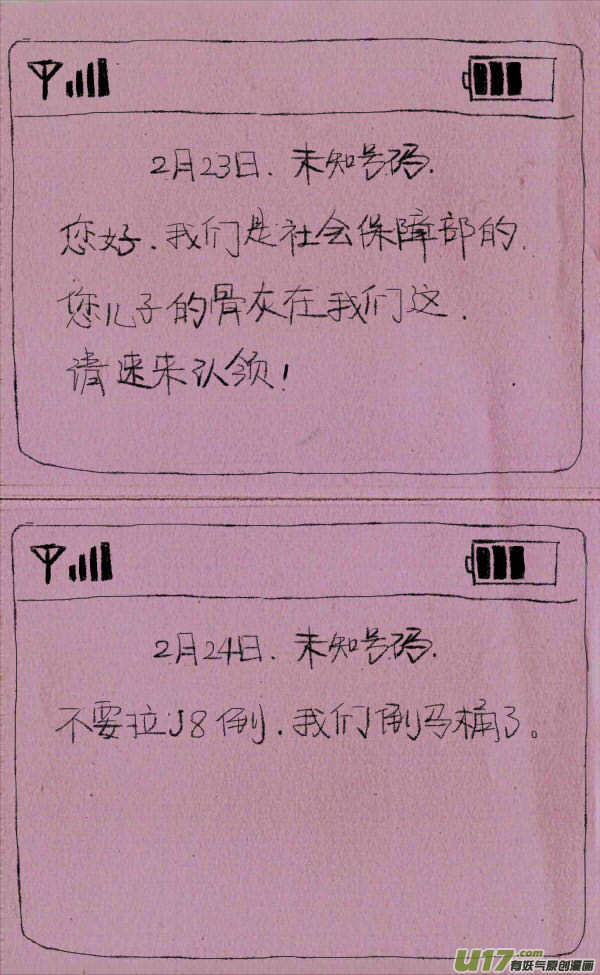 2月23日. 未知号码.
您好.我们是社会保障部的.
您儿子的骨灰在我们这.
请速来认领!
2月24日. 未知号码.
不要拉J8倒.我们倒马桶了。
U17.com
有妖气原创漫画